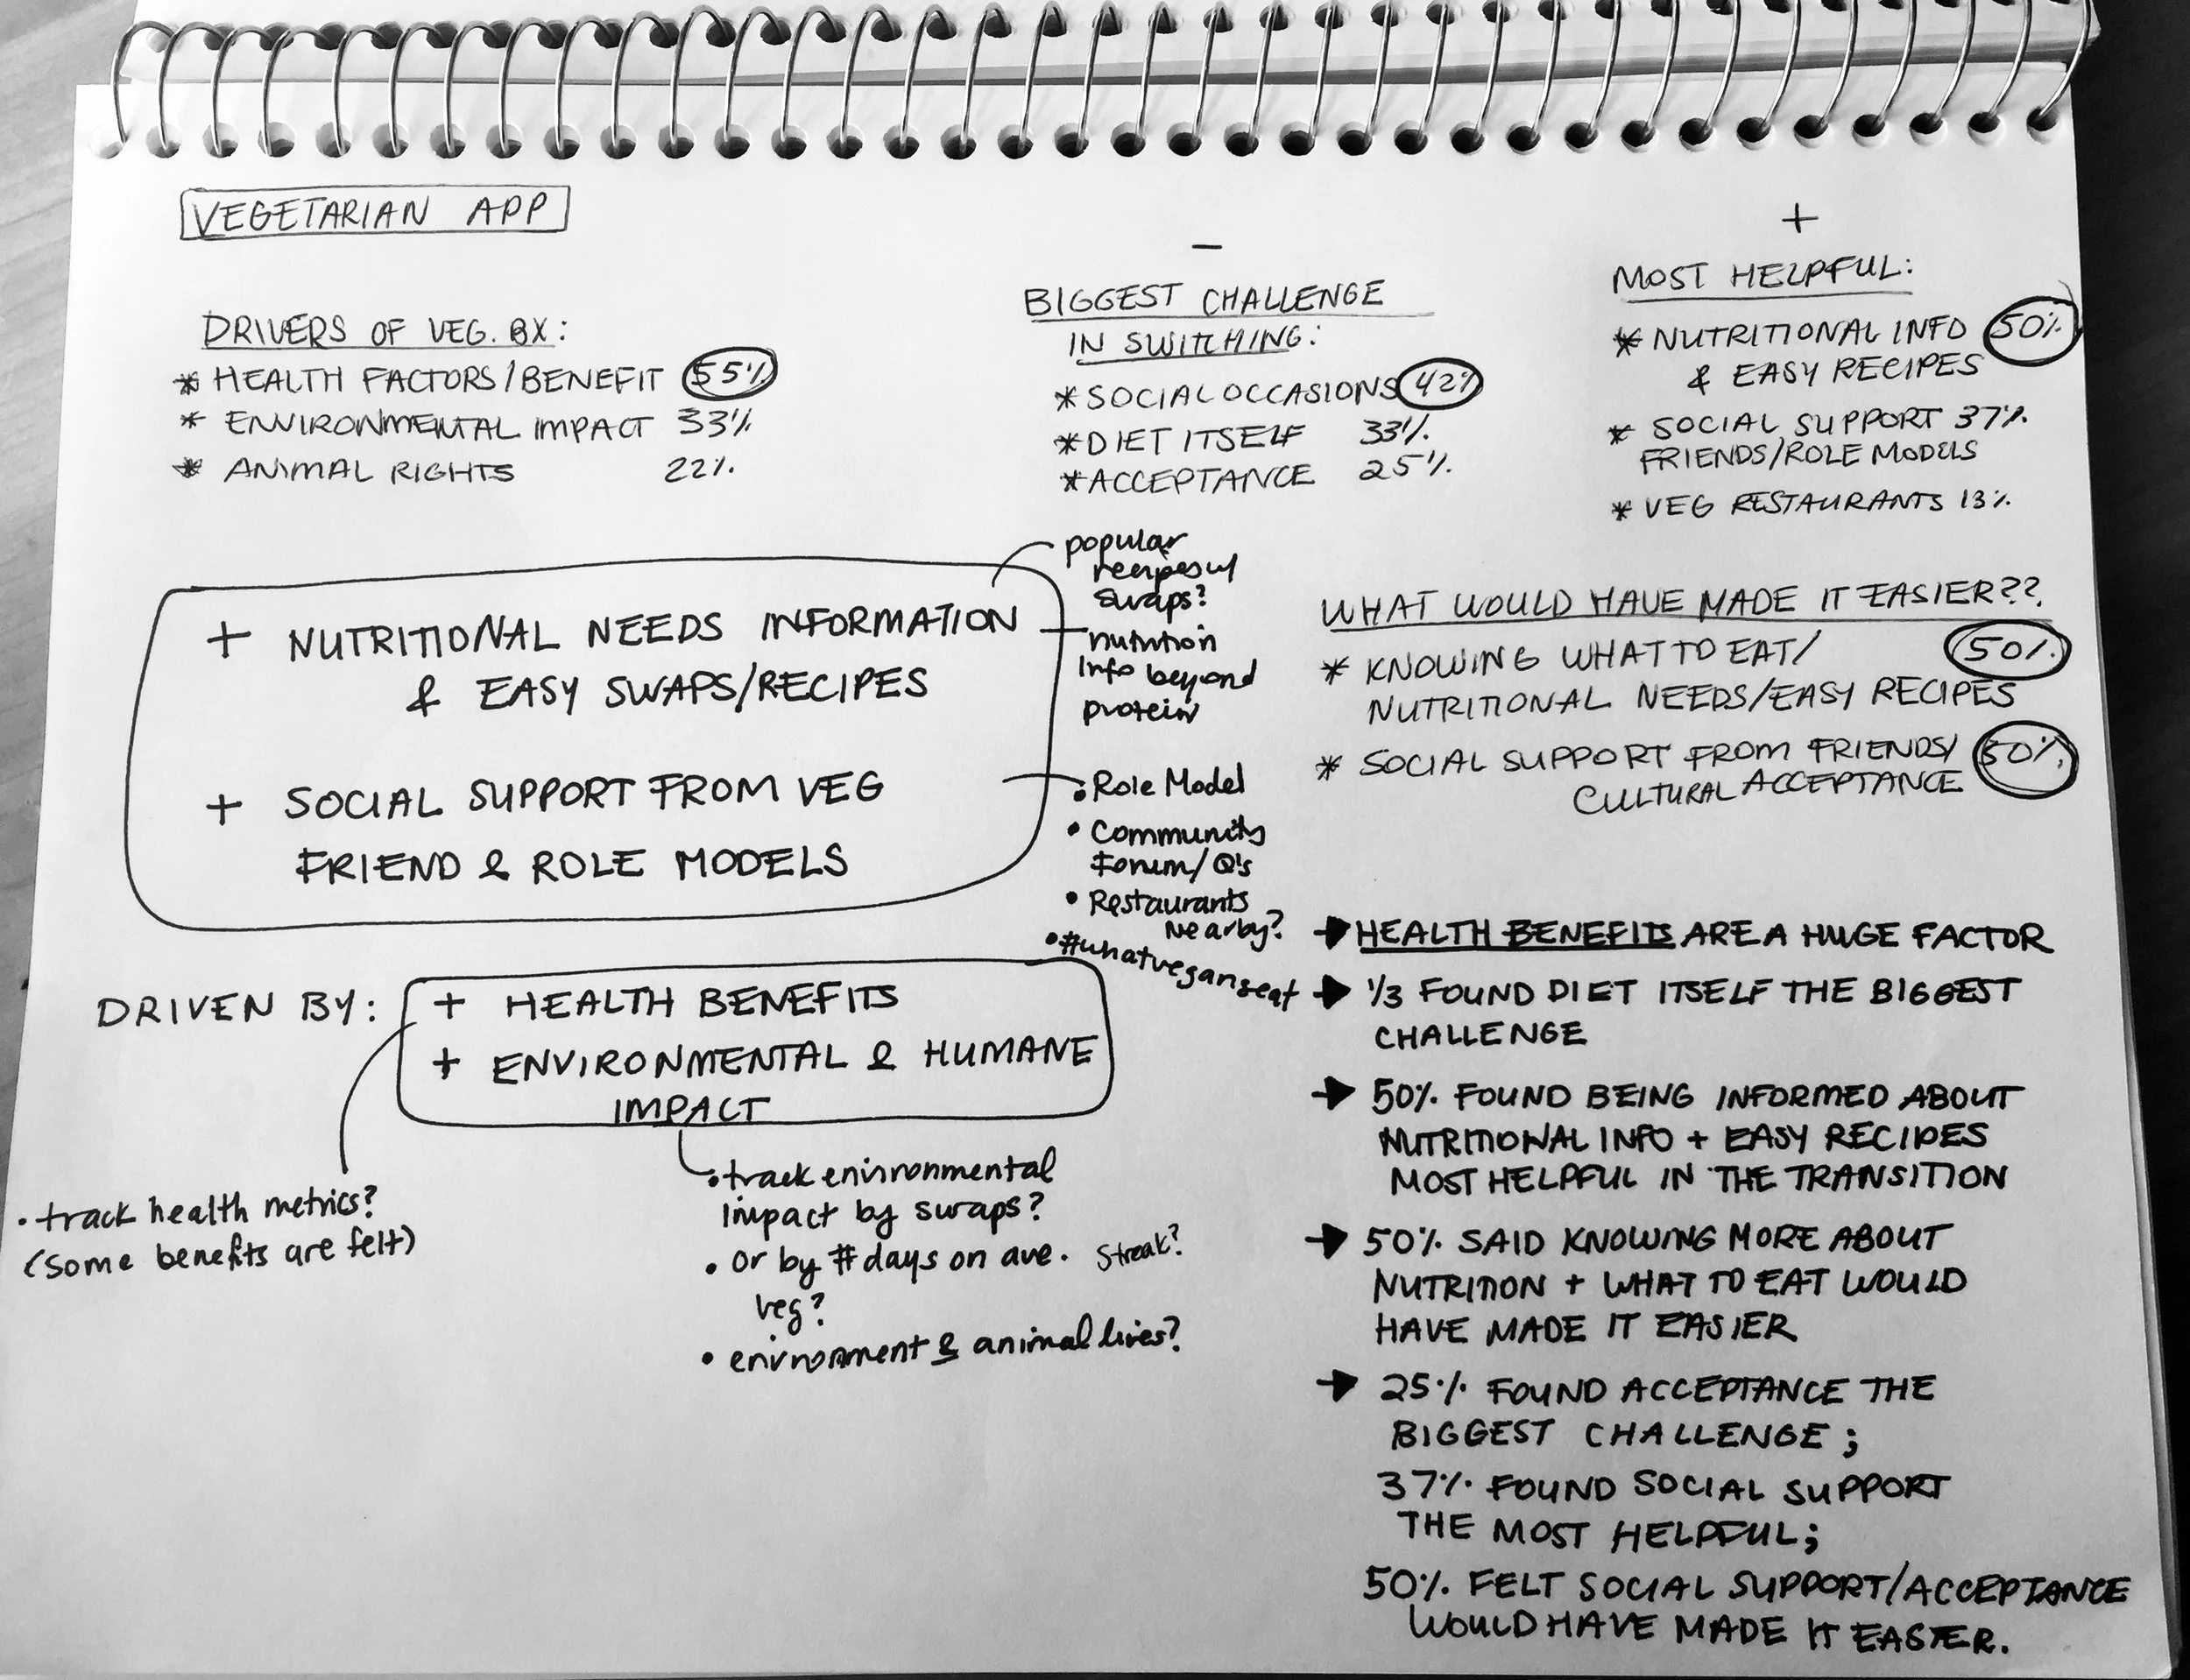 VEGETARIAN APP
DRIVERS OF VEG. BX:
* HEALTH FACTORS/BENEFIT 55%
* ENVIRONMENTAL IMPACT 33%
* ANIMAL RIGHTS 22%
–
BIGGEST CHALLENGE
IN SWITCHING:
* SOCIAL OCCASIONS 42%
* DIET ITSELF 33%
* ACCEPTANCE 25%
+
MOST HELPFUL:
* NUTRITIONAL INFO 50%
& EASY RECIPES
* SOCIAL SUPPORT 37%
FRIENDS/ROLE MODELS
* VEG RESTAURANTS 13%
WHAT WOULD HAVE MADE IT EASIER??
* KNOWING WHAT TO EAT/ 50%
NUTRITIONAL NEEDS/EASY RECIPES
* SOCIAL SUPPORT FROM FRIENDS/ 50%
CULTURAL ACCEPTANCE
+ NUTRITIONAL NEEDS INFORMATION
& EASY SWAPS/RECIPES
+ SOCIAL SUPPORT FROM VEG
FRIEND & ROLE MODELS
popular
recipes w/
swaps?
nutrition
Info beyond
protein
• Role Model
• Community
Forum/Q's
• Restaurants
Nearby?
• #whatveganseat
DRIVEN BY:
+ HEALTH BENEFITS
+ ENVIRONMENTAL & HUMANE
IMPACT
• track health metrics?
(some benefits are felt)
• track environmental
impact by swaps?
• Or by # days on ave. Streak?
veg?
• environment & animal lives?
→ HEALTH BENEFITS ARE A HUGE FACTOR
→ 1/3 FOUND DIET ITSELF THE BIGGEST
CHALLENGE
→ 50% FOUND BEING INFORMED ABOUT
NUTRITIONAL INFO + EASY RECIPES
MOST HELPFUL IN THE TRANSITION
→ 50% SAID KNOWING MORE ABOUT
NUTRITION + WHAT TO EAT WOULD
HAVE MADE IT EASIER
→ 25% FOUND ACCEPTANCE THE
BIGGEST CHALLENGE;
37% FOUND SOCIAL SUPPORT
THE MOST HELPFUL;
50% FELT SOCIAL SUPPORT/ACCEPTANCE
WOULD HAVE MADE IT EASIER.